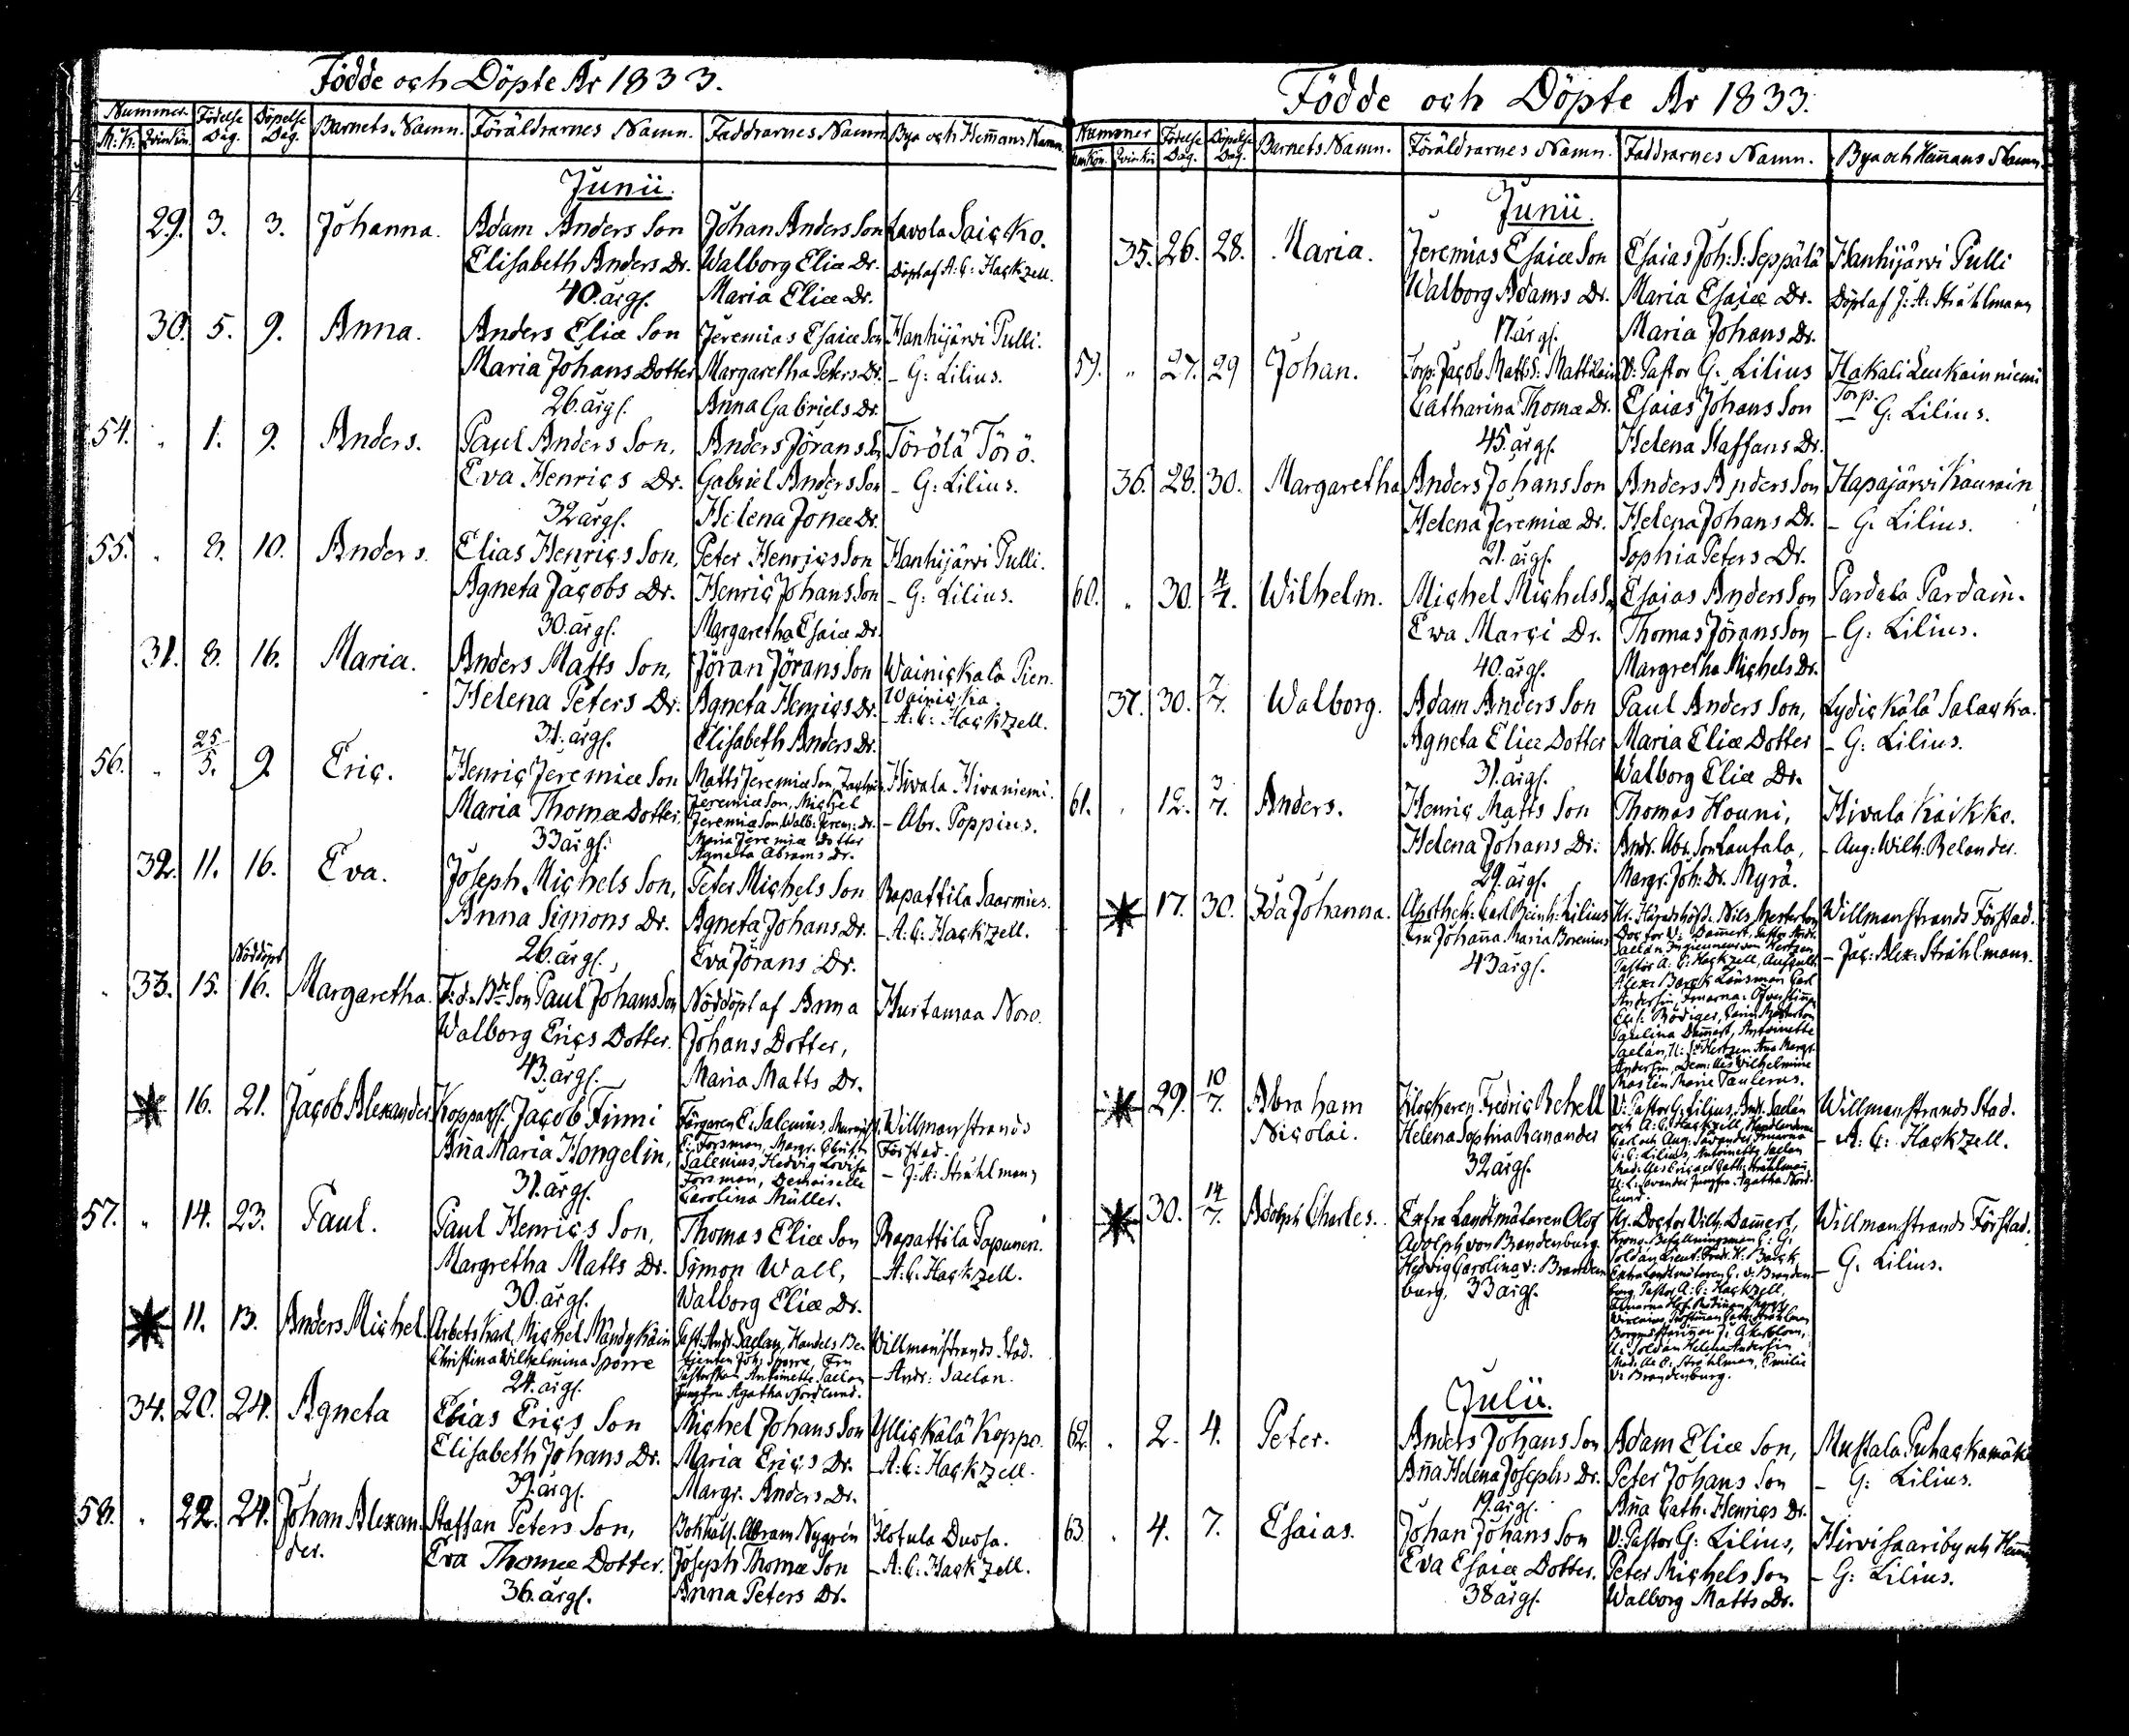 Födde och Döpte År 1833.
Nummer. Födelse Dag. Döpelse Dag. Barnets Namn. Föräldrarnes Namn. Faddrarnes Namn. Bya och Hem̄ans Namn.
M:K: Qvinkön.
Junii.
29. 3. 3. Johanna. Adam Anders Son Johan Anders Son Lavola Saicko.
Elisabeth Anders Dr. Walborg Eliæ Dr. Döpt af A: C: Hackzell.
40. årgs. Maria Eliæ Dr.
30. 5. 9. Anna. Anders Eliæ Son Jeremias Esaiæ Son Hanhijärvi Pulli.
Maria Johans Dotter Margaretha Peters Dr. – G: Lilius.
26. årgs. Anna Gabriels Dr.
54. " 1. 9. Anders. Paul Anders Son, Anders Jörans Son Törölä Törö.
Eva Henrics Dr. Gabriel Anders Son – G: Lilius.
32 årgs. Helena Jonæ Dr.
55. " 8. 10. Anders. Elias Henrics Son, Peter Henrics Son Hanhijärvi Pulli.
Agneta Jacobs Dr. Henric Johans Son – G: Lilius.
30. årgs. Margaretha Esaiæ Dr.
31. 8. 16. Maria. Anders Matts Son, Jöran Jörans Son Wainickala Pien.
Helena Peters Dr. Agneta Henrics Dr. Wainicka.
31. årgs. Elisabeth Anders Dr. – A: C: Hackzell.
56. " 25/5. 9. Eric. Henric Jeremiæ Son Matts Jeremiæ Son,
Maria Thomæ Dotter. Jeremiæ Son, Michel Hivala Hivaniemi.
33 årgs. Jeremiæ Son, Walb: Jerem: Dr. – Abr. Poppius.
Maria Jeremiæ Dotter
Agneta Abrams Dr.
32. 11. 16. Eva. Joseph Michels Son, Peter Michels Son Rapattila Saarmies.
Anna Simons Dr. Agneta Johans Dr. – A: C: Hackzell.
26. årgs. Eva Jörans Dr.
Nöddöpt
33. 15. 16. Margaretha. Paul Johans Son Nöddöpt af Anna Hurtamaa Noro.
Walborg Erics Dotter. Johans Dotter,
43. årgs. Maria Matts Dr.
16. 21. Jacob Alexander. Jacob Finni Färgaren E: Salenius, Willmanstrands
Anna Maria Hongelin, E: Forsman, Margr. Christ: Förstad.
31. årgs. Salenius, Hedvig Lovisa – J: A: Stråhlman,
Forsman, Demoiselle
Carolina Müller.
57. " 14. 23. Paul. Paul Henrics Son, Thomas Eliæ Son Rapattila Papunen.
Margretha Matts Dr. Simon Wall, – A: C: Hackzell.
30. årgs. Walborg Eliæ Dr.
11. 13. Anders Michel. Arbets Karl Michel Mändykäin Past: Andr. Saelan, Handels Be- Willmanstrands Stad.
Christina Wilhelmina Sporre tjenten Joh: Sporre, Fru – Andr: Saelan.
24. årgs. Pastorskan Antoinette Saelan
Jungfru Agatha Nordlund.
34. 20. 24. Agneta Elias Erics Son Michel Johans Son Ylickälä Koppo.
Elisabeth Johans Dr. Maria Erics Dr. – A: C: Hackzell.
39. årgs. Margr. Anders Dr.
58. " 22. 24. Johan Alexan- Staffan Peters Son, Bokhåll. Abram Nygrén Hotula Duvsa.
der. Eva Thomæ Dotter. Joseph Thomæ Son – A: C: Hackzell.
36. årgs. Anna Peters Dr.
Födde och Döpte År 1833.
Nummer Födelse Dag. Döpelse Dag. Barnets Namn. Föräldrarnes Namn. Faddrarnes Namn. Bya och Hem̄ans Namn.
Junii.
35. 26. 28. Maria. Jeremias Esaiæ Son Esaias Joh: S: Seppälä Hanhijärvi Pulli
Walborg Adams Dr. Maria Esaiæ Dr. Döpt af J: A: Stråhlmann
17. årgs. Maria Johans Dr.
59. " 27. 29 Johan. Torp: Jacob Matts S: Mattilain V: Pastor G. Lilius Hakali Leukainniemi
Catharina Thomæ Dr. Esaias Johans Son Torp.
45. årgs. Helena Staffans Dr. – G: Lilius.
36. 28. 30. Margaretha Anders Johans Son Anders Anders Son Hapajärvi Kaurain
Helena Jeremiæ Dr. Helena Johans Dr. – G: Lilius.
21. årgs. Sophia Peters Dr.
60. " 30. 4/7. Wilhelm. Michel Michels Son Esaias Anders Son Pardala Pardain.
Eva Marci Dr. Thomas Jörans Son – G: Lilius.
40. årgs. Margretha Michels Dr.
37. 30. 7/7. Walborg. Adam Anders Son Paul Anders Son, Lydickälä Salacka.
Agneta Eliæ Dotter Maria Eliæ Dotter – G: Lilius.
31. årgs. Walborg Eliæ Dr.
61. " 12. 3/7. Anders. Henric Matts Son Thomas Houni, Hivala Kaikko.
Helena Johans Dr: Andr. Abr. Son Lautala, – Aug: Wilh: Relander.
29. årgs. Margr. Joh: Dr. Myrä.
17. 30. Ida Johanna. Apothek: Carl Reinh: Lilius Hr. Häradshöfd. Nils Mesterton Willmanstrands Förstad.
Fru Johanna Maria Borenius Doctor W: Dammert, Pastor Andr: – Jac: Alex: Stråhlmann.
43 årgs. Saelan, von Hertzen
Pastor A: C: Hackzell,
Alex: Länsman Carl
Andersin, Fruarna:
Rödiger, Mesterton
Paulina Dammert, Antoinette
Saelan, Hertzen
Andersin, Wilhelmine
Maslin Marie Taulerus.
29. 10/7. Abraham Klockaren Fredric Rehell V: Pastor G: Lilius, Andr. Saelan Willmanstrands Stad.
Nicolai. Helena Sophia Renander och A: C: Hackzell, – A: C: Hackzell.
32 årgs. Carl och Aug: Savander, Fruarna
C: C: Lilius, Antoinette Saelan
Stråhlman,
Savander Jungfru Agatha Nord-
lund.
30. 14/7. Adolph Charles. Extra Landtmätaren Olof Hr. Doctor Wilh. Dammert, Willmanstrands Förstad.
Adolph von Brandenburg. Krono Befallningsman C: G: – G. Lilius.
Hedvig Carolina v: Branden- Soldan Lieut: Fredr. H:
burg, 33 årgs. Extra Landtmätaren C. v: Branden-
burg, Pastor A: C: Hackzell,
Stråhlman
J: Åkerblom,
Soldan Helena Andersin
Stråhlman, Emilie
v: Brandenburg.
Julii.
62. " 2. 4. Peter. Anders Johans Son Adam Eliæ Son, Mustala Puhackamäki
Anna Helena Josephs Dr. Peter Johans Son – G: Lilius.
19. årgs. Anna Cath: Henrics Dr.
63 " 4. 7. Esaias. Johan Johans Son V: Pastor G: Lilius, Hirvisaari by och
Eva Esaiæ Dotter. Peter Michels Son – G: Lilius.
38 årgs. Walborg Matts Dr.